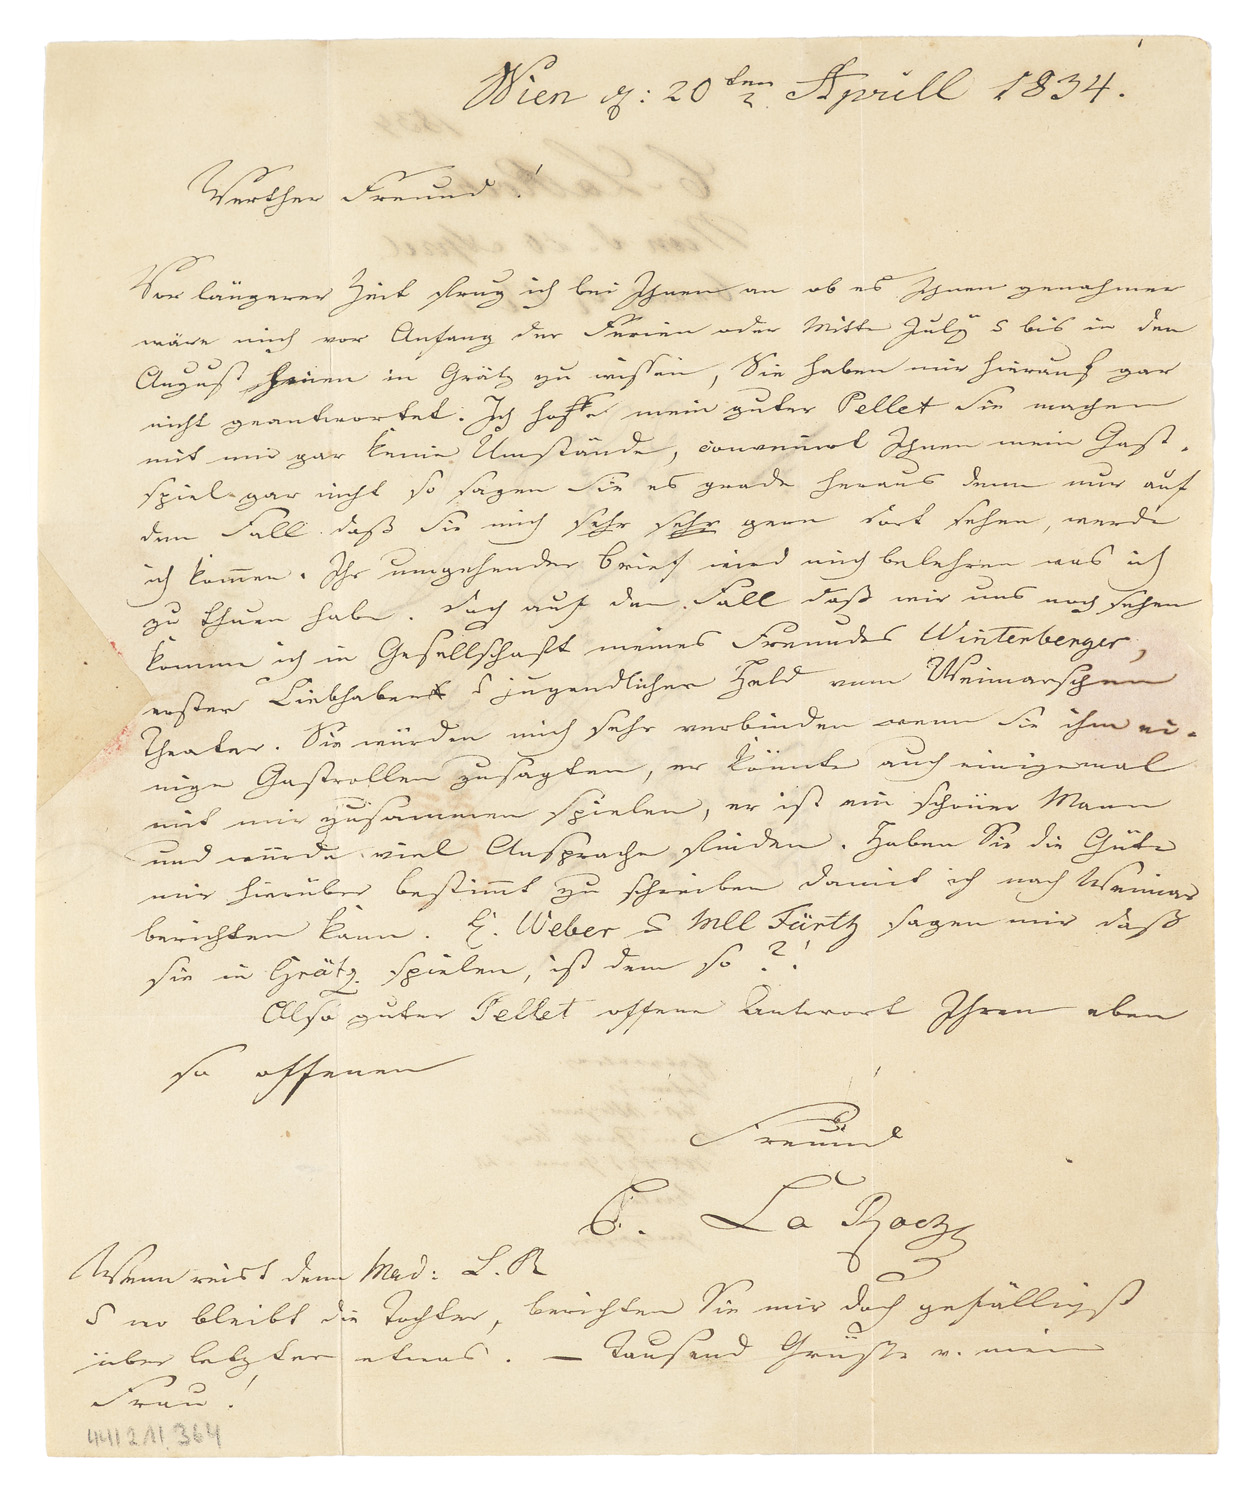 Wien d: 20ten Aprill 1834.
Werther Freund!
Vor längerer Zeit frug ich bei Ihnen an ob es Ihnen genehmer
wäre mich vor Anfang der Ferien oder Mitte July & bis in den
August hinein in Grätz zu wissen, Sie haben mir hierauf gar
nicht geantwortet. Ich hoffe mein guter Pellet Sie machen
mit mir gar keine Umstände, convenirt Ihnen mein Gast-
spiel gar nicht so sagen Sie es grade heraus denn nur auf
den Fall daß Sie mich sehr sehr gern dort sehen, werde
ich kommen. Ihr umgehender Brief wird mich belehren was ich
zu thuen habe. Doch auf den Fall daß wir uns noch sehen
komme ich in Gesellschaft meines Freundes Winterberger,
erster Liebhaber & jugendlicher Held vom Weimarschen
Theater. Sie würden mich sehr verbinden wenn Sie ihm ei-
nige Gastrollen zusagten, er könnte auch einigemal
mit mir zusammen spielen, er ist ein schöner Mann
und würde viel Ansprache finden. Haben Sie die Güte
mir hierüber bestimmt zu schreiben damit ich nach Weimar
berichten kann. H. Weber & Mll sagen mir daß
sie in Grätz spielen, ist dem so?!
Also guter Pellet offene Antwort Ihren eben
so offenen
Freund
C. La Roche
Wenn reist denn Mad: L. R
& wo bleibt die Tochter, berichten Sie mir doch gefälligst
über letzter etwas. – Tausend Grüße v. mein
Frau!
4412 11.364